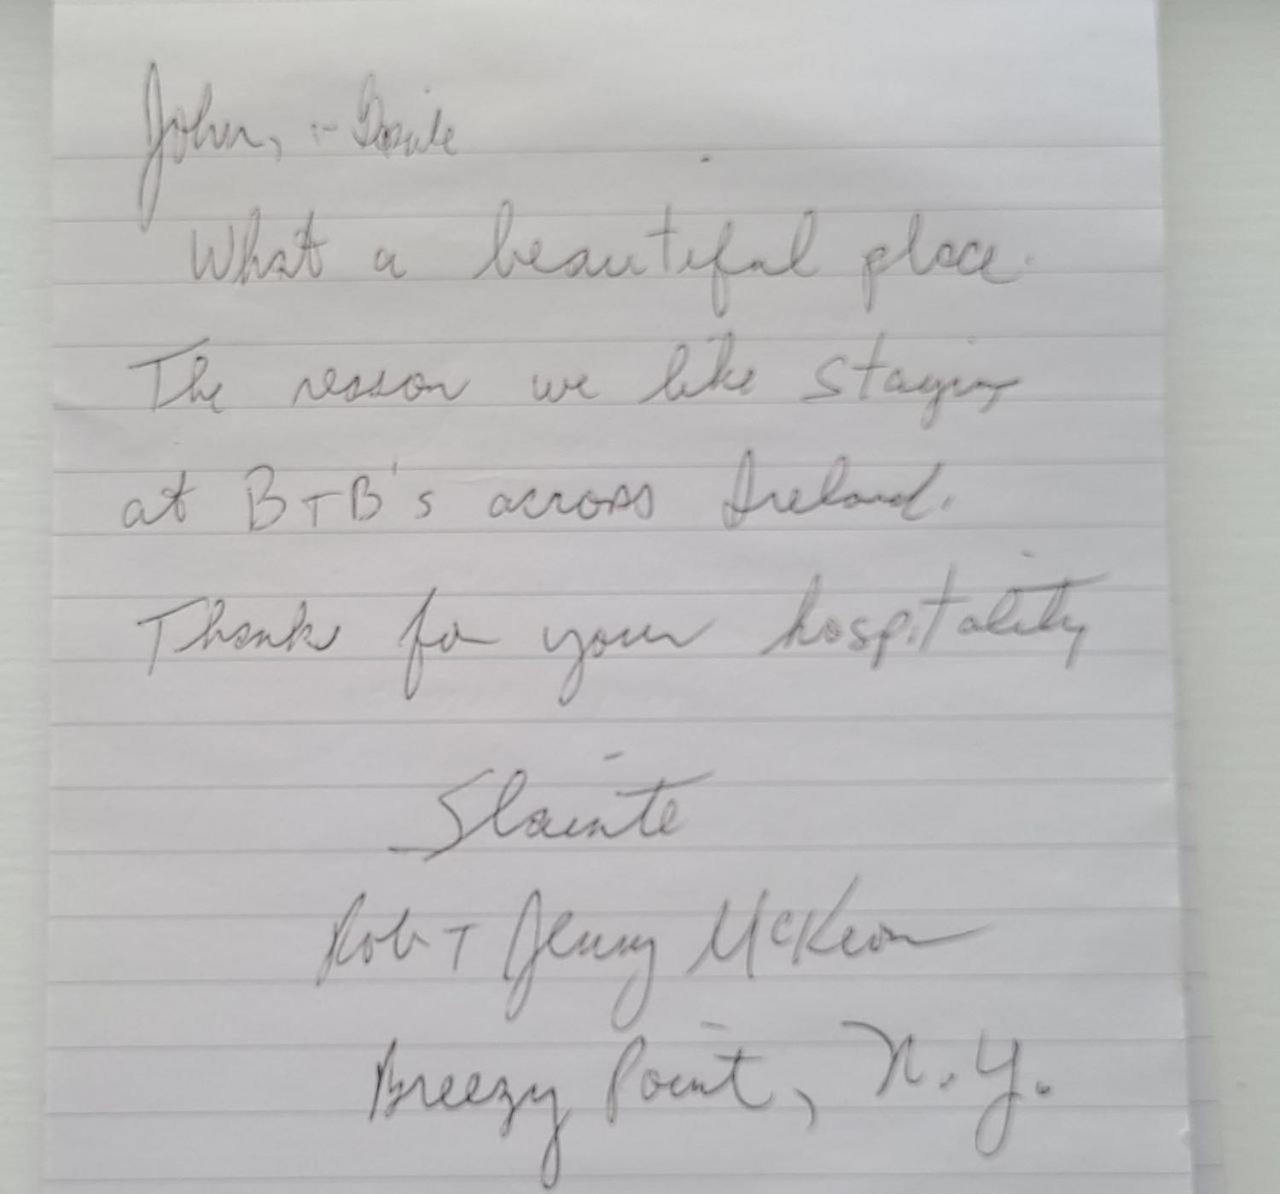 John,
What a beautiful place.
The reason we like staying
at B+B's across Ireland.
Thank for your hospitality
Slainte
Rob + Jenny McKeon
Breezy Point, N.Y.